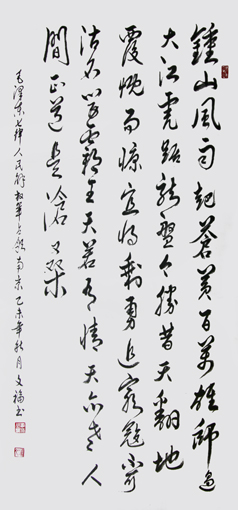 鍾山風雨起蒼黄百萬雄師過
大江虎踞龍盤今勝昔天翻地
覆慨而慷宜将剩勇追窮寇不可
沽名學霸王天若有情天亦老人
間正道是滄桑
毛澤東七律人民解放軍占領南京乙未年秋月文福書